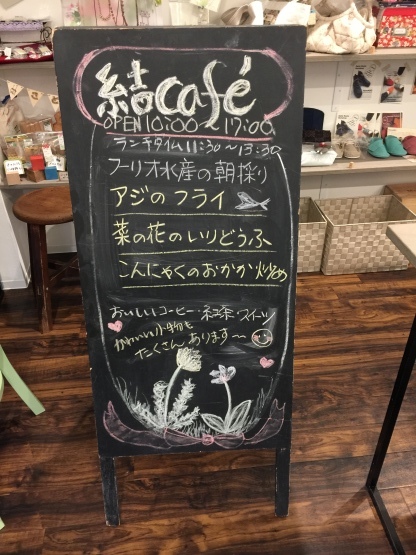 結café
OPEN 10:00〜17:00
ランチタイム11:30〜13:30
フーリオ水産の朝採り
アジのフライ
菜の花のいりどうふ
こんにゃくのおかか炒め
おいしいコーヒー・紅茶・スイーツ
かわいい小物も
たくさんあります〜